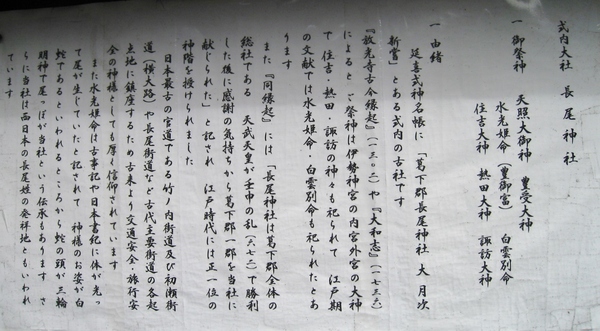 式内大社 長尾神社
一 御祭神 天照大御神 豊受大神
水光姫命(豊御富) 白雲別命
住吉大神 熱田大神 諏訪大神
一 由緒
延喜式神名帳に「葛下郡長尾神社 大 月次
新嘗」とある式内の古社です
『放光寺古今縁起』(一三〇二)や『大和志』(一七三六)
によると ご祭神は伊勢神宮の内宮外宮の大神
で住吉・熱田・諏訪の神々も祀られて 江戸期
の文献では水光姫命・白雲別命も祀られたとあ
ります
また『同縁起』には「長尾神社は葛下郡全体の
総社である 天武天皇が壬申の乱(六七二)で勝利
した後に感謝の気持ちから葛下郡一郡を当社に
献じられた」と記され 江戸時代には正一位の
神階を授けられました
日本最古の官道である竹ノ内街道及び初瀬街
道(横大路)や長尾街道など古代主要街道の各起
点地に鎮座するため古来より交通安全・旅行安
全の神様としても厚く信仰されています
また水光姫命は古事記や日本書紀に体が光っ
て尾が生じていたと記されて 神様のお姿が白
蛇であるといわれるところから蛇の頭が三輪
明神で尾っぽが当社という伝承もあります さ
らに当社は西日本の長尾姓の発祥地ともいわれ
ています